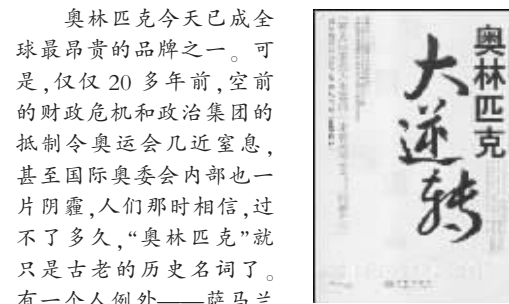 奥林匹克今天已成全
球最昂贵的品牌之一。可
是,仅仅 20 多年前,空前
的财政危机和政治集团的
抵制令奥运会几近窒息,
甚至国际奥委会内部也一
片阴霾,人们那时相信,过
不了多久,“奥林匹克”就
只是古老的历史名词了。
有一个人例外——萨马兰
奥林匹克
大逆转